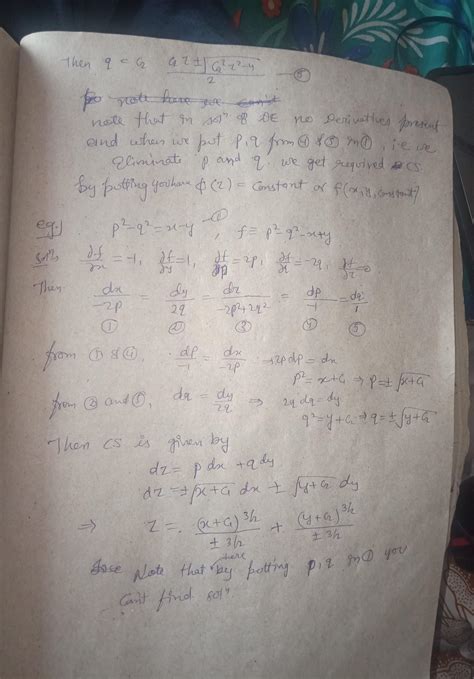 Then q = C₂ (C₂ z ± √(C₂² z² - 4))/2 —⑧
note here we can't
note that in solⁿ of DE no Derivatives present
and when we put p, q from ④ & ⑤ in ①, i.e we
Eliminate p and q. we get required CS
by putting you have ϕ(z) = Constant or f(x, y, constant)
eg:) p² - q² = x - y —① , f ≡ p² - q² - x + y
solⁿ: ∂f/∂x = -1, ∂f/∂y = 1, ∂f/∂p = 2p, = -2q,
Then dx/-2p = dy/2q = dz/-2p²+2q² = dp/-1 = dq/1
① ② ③ ④ ⑤
from ① & ④, dp/-1 = dx/-2p → 2p dp = dx
p² = x + C₁ ⇒ p = ± √(x + C₁)
from ② and ⑤, dq = dy/2q ⇒ 2q dq = dy
q² = y + C₂ ⇒ q = ± √(y + C₂)
Then CS is given by
dz = p dx + q dy
dz = ± √(x + C₁) dx ± √(y + C₂) dy
⇒ z = (x + C₁)^3/2 / ± 3/2 + (y + C₂)^3/2 / ± 3/2
Note that here by putting p, q in ① you
Can't find solⁿ